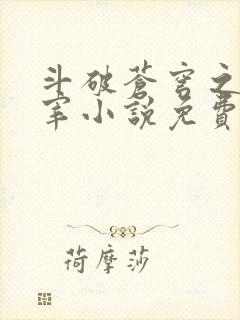 斗破蒼穹之
宰小說免費
荷摩莎